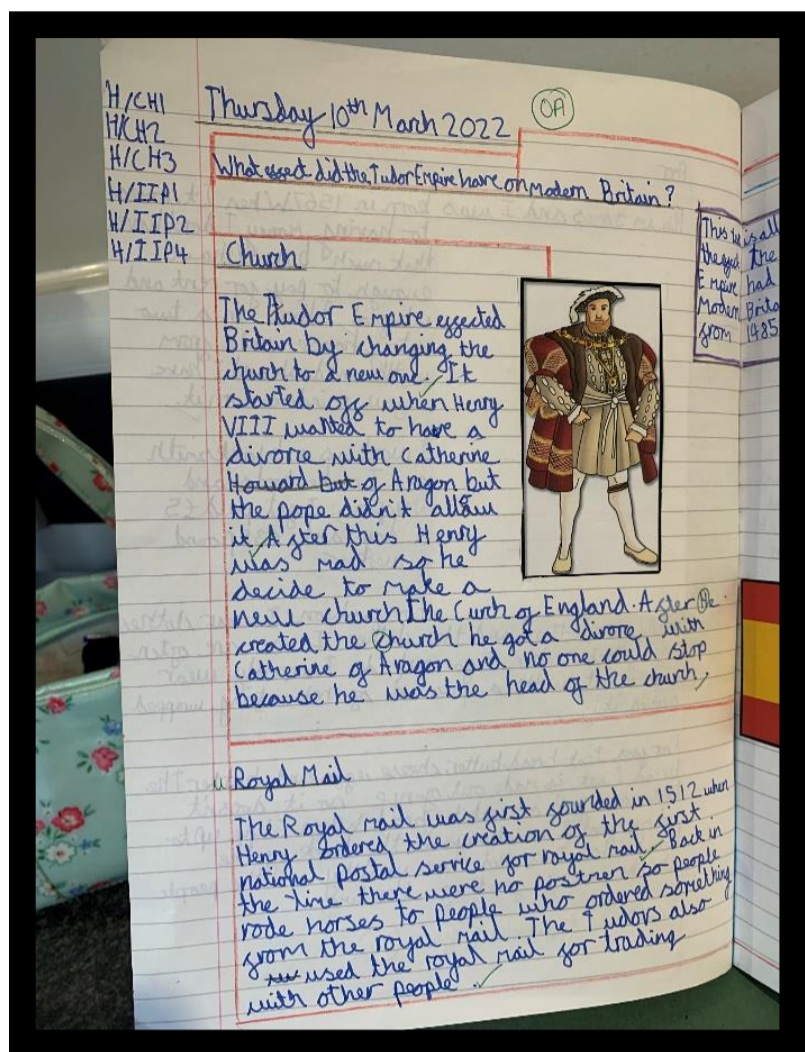 H/CH1
H/CH2
H/CH3
H/IIP1
H/IIP2
H/IIP4
Thursday 10th March 2022
OA
What effect did the Tudor Empire have on Modern Britain?
Church
The Tudor Empire effected
Britain by changing the
church to a new one. It
started off when Henry
VIII wanted to have a
divore with Catherine
Howard but of Aragon but
the pope didn't allow
it. After this Henry
was mad so he
decide to make a
new church the Curch of England. After He
created the Church he got a divore with
Catherine of Aragon and no one could stop
because he was the head of the church
Royal Mail
The Royal mail was first founded in 1512 when
Henry ordered the creation of the first
national postal service for royal mail. Back in
the time there were no postmen so people
rode horses to people who ordered something
from the royal mail. The Tudors also
used the royal mail for trading
with other people.
This is all
the effect the
Empire had
Modern Brita
from 1485